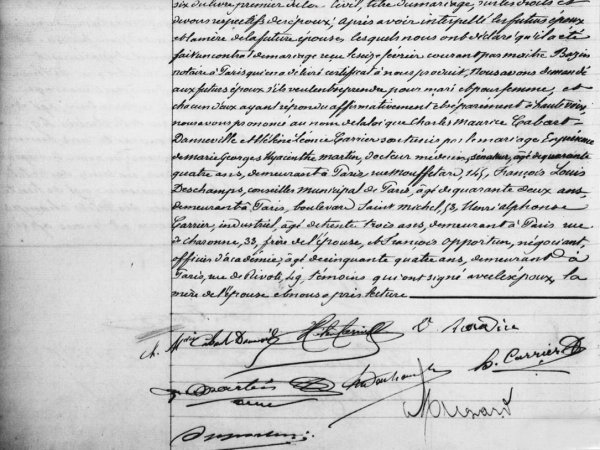 six du livre premier du Code Civil, titre du mariage, sur les droits et
devoirs respectifs des époux; Après avoir interpellé les futurs époux
et la mère de la future épouse, lesquels nous ont déclaré qu'il a été
fait un contrat de mariage reçu le seize février courant par maître Bazin
notaire à Paris qui en a délivré certificat à nous produit. Nous avons demandé
aux futurs époux s'ils veulent se prendre pour mari et pour femme, et
chacun d'eux ayant répondu affirmativement et séparément à haute voix
nous avons prononcé au nom de la loi que Charles Maurice Cabart-
Danneville et Hélène Léonie Carrier sont unis par le mariage. En présence
de marie Georges Hyacinthe martin, docteur médecin, sénateur, âgé de quarante
quatre ans, demeurant à Paris, rue Mouffetard, 145, François Louis
Deschamps, conseiller municipal de Paris, âgé de quarante deux ans,
demeurant à Paris, boulevard Saint michel, 53, Henri alphonse
Carrier, industriel, âgé de trente trois ans, demeurant à Paris rue
de Charonne, 33, frère de l'épouse, et François Opportun, négociant,
officier d'académie, âgé de cinquante quatre ans, demeurant à
Paris, rue de Rivoli, témoins qui ont signé avec les époux, la
mère de l'épouse et nous après lecture
Ch. Mce Cabart Dannevil H. L. Carrier
h. Carrier
martin
Opportun